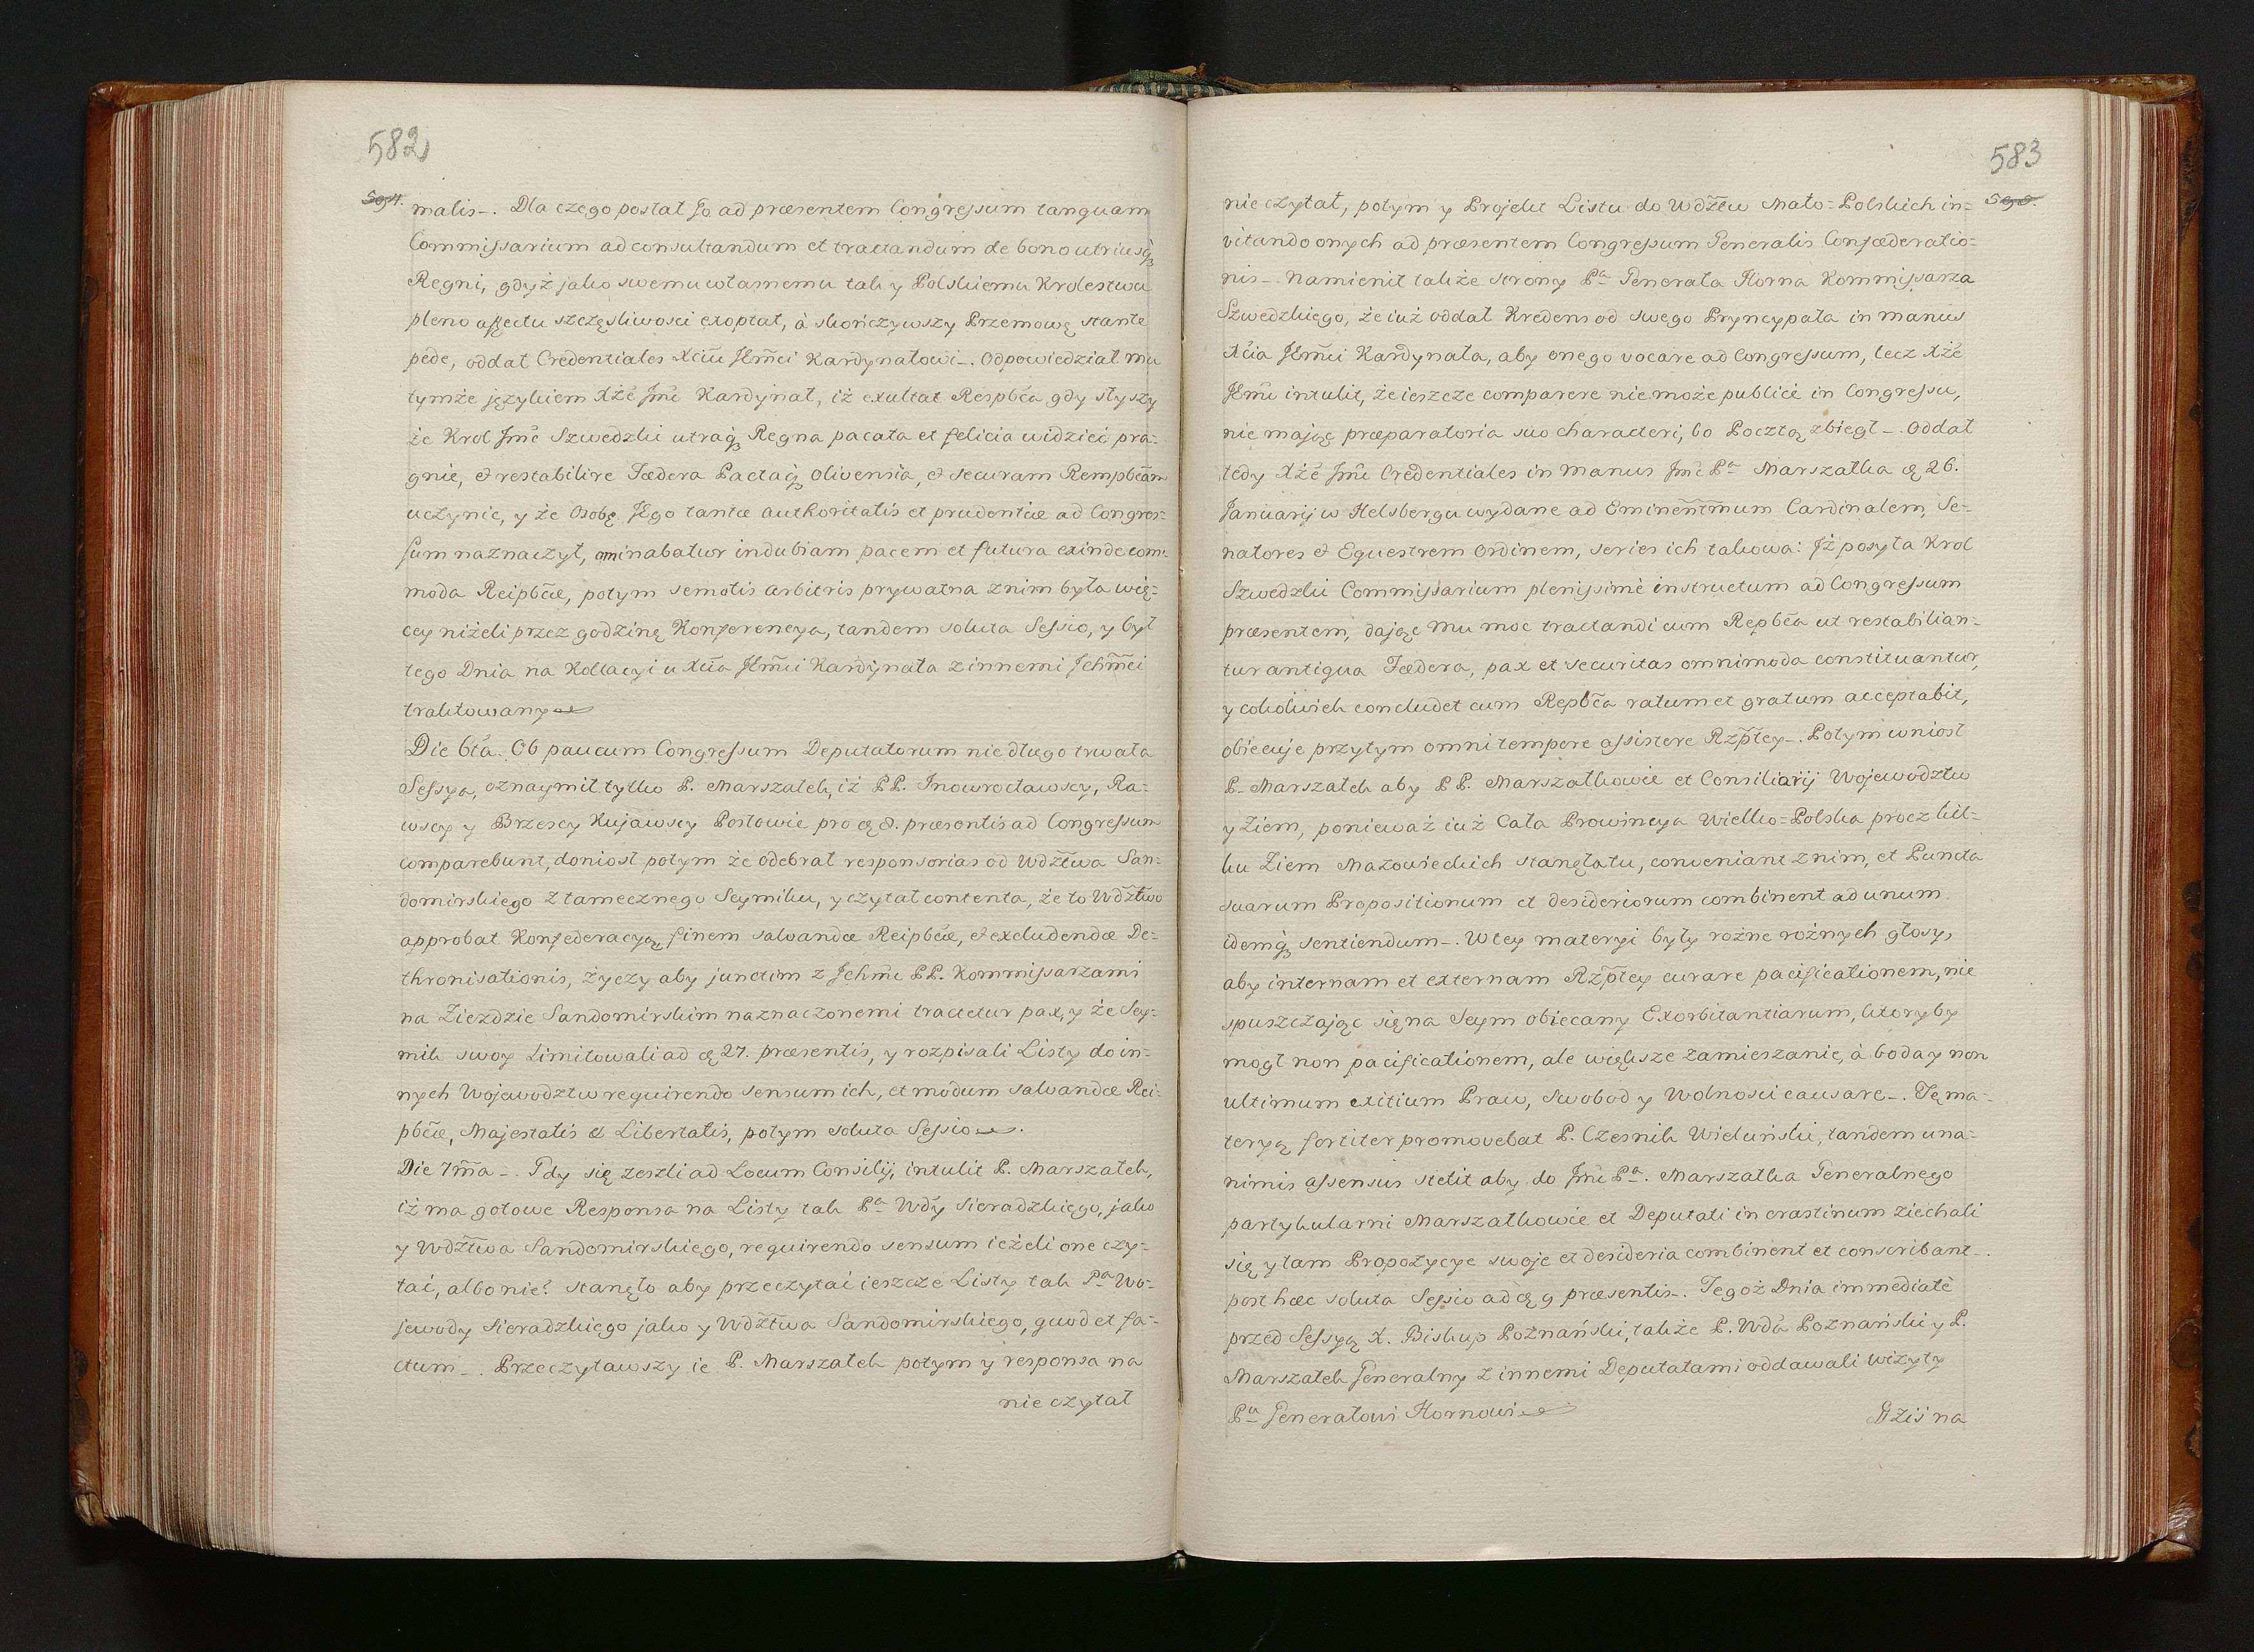 582
malis_. Dla czego posłał Jo ad præsentem Congressum tanquam
Commissarium ad consultandum et tractandum de bono utriusq;
Regni, gdyż jako swemu własnemu tak y Polskiemu Krolestwu
pleno affectu szczęsliwosci exoptat, à skończywszy Przemowę stante
pede, oddał Credentiales Xciu JEmci Kardynałowi_. Odpowiedział mu
tymże językiem Xże Jmć Kardynał, iż exultat Respbca gdy słyszy
że Krol Jmć Szwedzki utraq; Regna pacata et felicia widzieć pra=
gnie, et restabilire Fœdera Pactaq; Olivensia, et securam Rempbcam
uczynić, y że Osobę JEgo tantæ authoritatis et prudentiæ ad Congres=
sum naznaczył, ominabatur indubiam pacem et futura exinde com=
moda Reipbcæ, potym semotis arbitris prywatna z nim była wię=
cey niżeli przez godzinę Konferencya, tandem soluta Sessio, y był
tego Dnia na Kollacyi u Xcia JEmci Kardynała z innemi Jchmci
traktowany
Die 6ta. Ob paucum Congressum Deputatorum nie długo trwała
Sessya, oznaymił tylko P. Marszałek, iż PP. Inowrocławscy, Ra=
wscy y Brzescy Kujawscy Posłowie pro 8. præsentis ad Congressum
comparebunt, doniosł potym że odebrał responsorias od Wdztwa San=
domirskiego z tamecznego Seymiku, y czytał contenta, że to Wdztwo
approbat Konfederacyą, finem salvandæ Reipbcæ, et excludendæ De=
thronisationis, życzy aby junctim z Jchmć PP. Kommissarzami
na Zieździe Sandomirskim naznaczonemi tractetur pax, y że Sey=
mik swoy limitowali ad 27. præsentis, y rozpisali Listy do in=
nych Wojewodztw requirendo sensum ich, et modum salvandæ Rei=
pbcæ, Majestatis et Libertatis, potym soluta Sessio.
Die 7ma_. Gdy się zeszli ad Locum Consilij, intulit P. Marszałek,
iż ma gotowe Responsa na Listy tak Pa Wdy Sieradzkiego, jako
y Wdztwa Sandomirskiego, requirendo sensum ieżeli one czy=
tać, albo nie? stanęło aby przeczytać ieszcze Listy tak Pa Wo=
jewody Sieradzkiego jako y Wdztwa Sandomirskiego, quod et fa=
ctum_. Przeczytawszy ie P. Marszałek potym y responsa na
nie czytał
583
nie czytał, potym y Projekt Listu do Wdztw Mało=Polskich in=
vitando onych ad præsentem Congressum Generalis Confœderatio=
nis_ Namienił także strony Pa Generała Horna Kommissarza
Szwedzkiego, że iuż oddał Kredens od swego Pryncypała in manus
Xcia JEmci Kardynała, aby onego vocare ad Congressum, lecz Xże
JEmć intulit, że ieszcze comparere nie może publicè in Congressu,
nie mając præparatoria suo characteri, bo Pocztą zbiegł_. Oddał
tedy Xże Jmć Credentiales in manus Jmć Pa Marszałka 26.
Januarij w Helsbergu wydane ad Eminentmum Cardinalem, Se=
natores et Equestrem Ordinem, series ich takowa: Jż posyła Krol
Szwedzki Commissarium plenissimè instructum ad Congressum
præsentem, dając mu moc tractandi cum Repbca ut restabilian=
tur antiqua Fœdera, pax et securitas omnimoda constituantur,
y cokolwiek concludet cum Repbca ratum et gratum acceptabit,
obiecuje przytym omni tempore assistere Rzptey_. Potym wniosł
P. Marszałek aby PP. Marszałkowie et Consiliarij Wojewodztw
y Ziem, ponieważ iuż Cała Prowincya Wielko=Polska procz kil=
ku Ziem Mazowieckich stanęła tu, conveniant z nim, et Puncta
suarum Propositionum et desideriorum combinent ad unum
idemq; sentiendum_. W tey materyi były rożne rożnych głosy,
aby internam et externam Rzptey curare pacificationem, nie
spuszczając się na Seym obiecany Exorbitantiarum, ktoryby
mogł non pacificationem, ale większe zamieszanie, à boday non
ultimum exitium Praw, Swobod y Wolnosci causare_. Tę ma=
teryą fortiter promovebat P. Czesnik Wieluński, tandem una=
nimis assensus stetit aby do Jmć Pa. Marszałka Generalnego
partykularni Marszałkowie et Deputati in crastinum ziechali
się y tam Propozycye swoje et desideria combinent et conscribant_.
post hæc soluta Sessio ad 9 præsentis_. Tegoż Dnia immediatè
przed Sessyą X. Biskup Poznański, także P. Wda Poznański y P.
Marszałek Generalny z innemi Deputatami oddawali wizyty
Pa Generałowi Hornowi
Dziś na